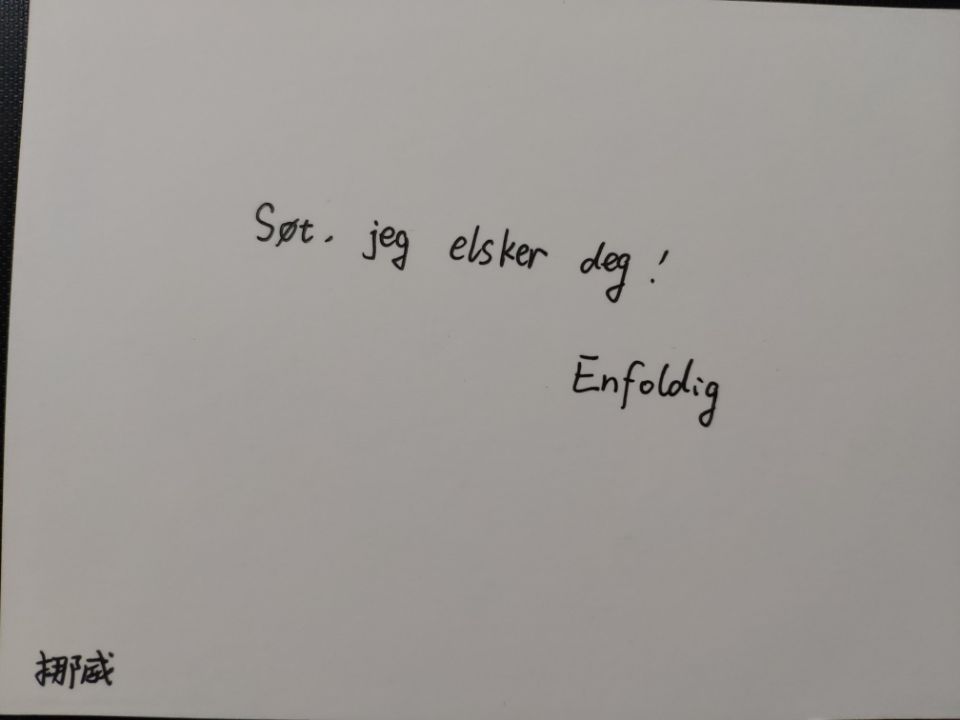 Søt, jeg elsker deg!
Enfoldig
挪威